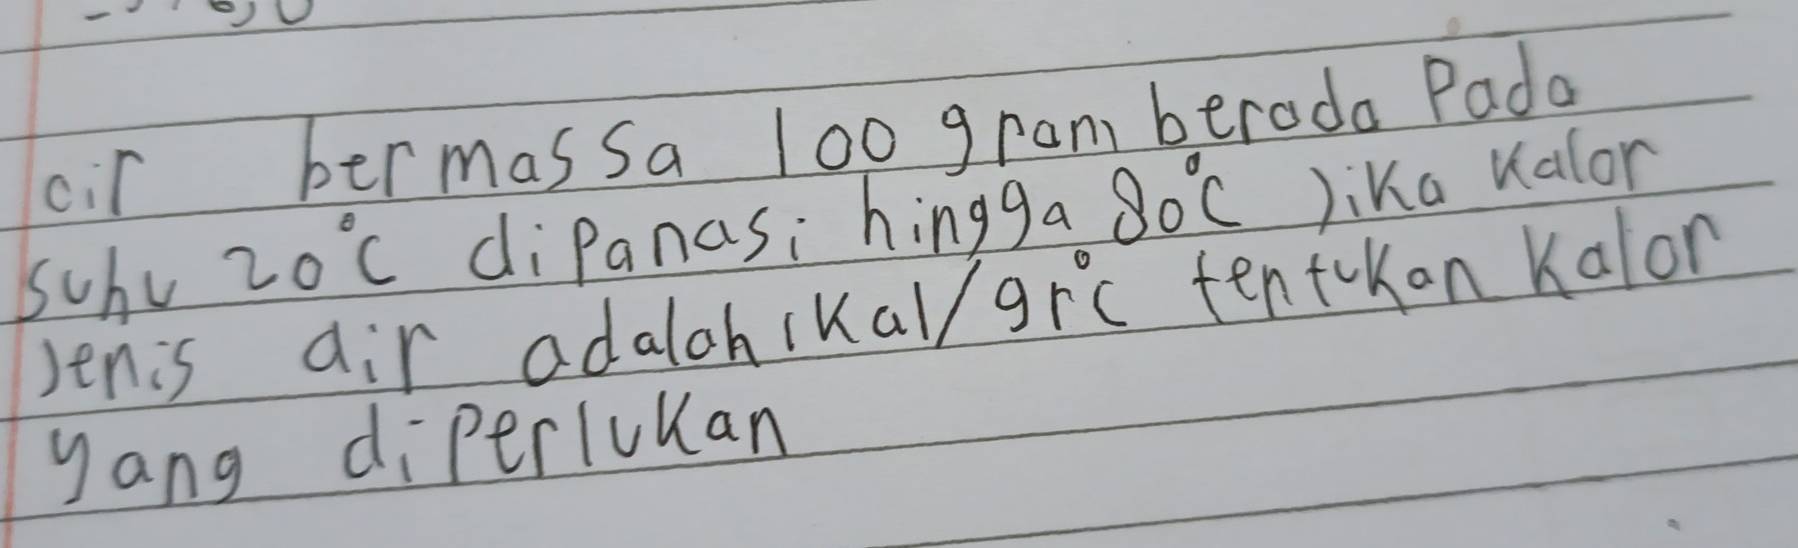 air bermassa 100 gram berada Pada
suhu 20°C dipanasi hingga 80°C Jika Kalor
Jenis air adalah 1Kal/gr°c tentukan Kalor
yang diperlukan